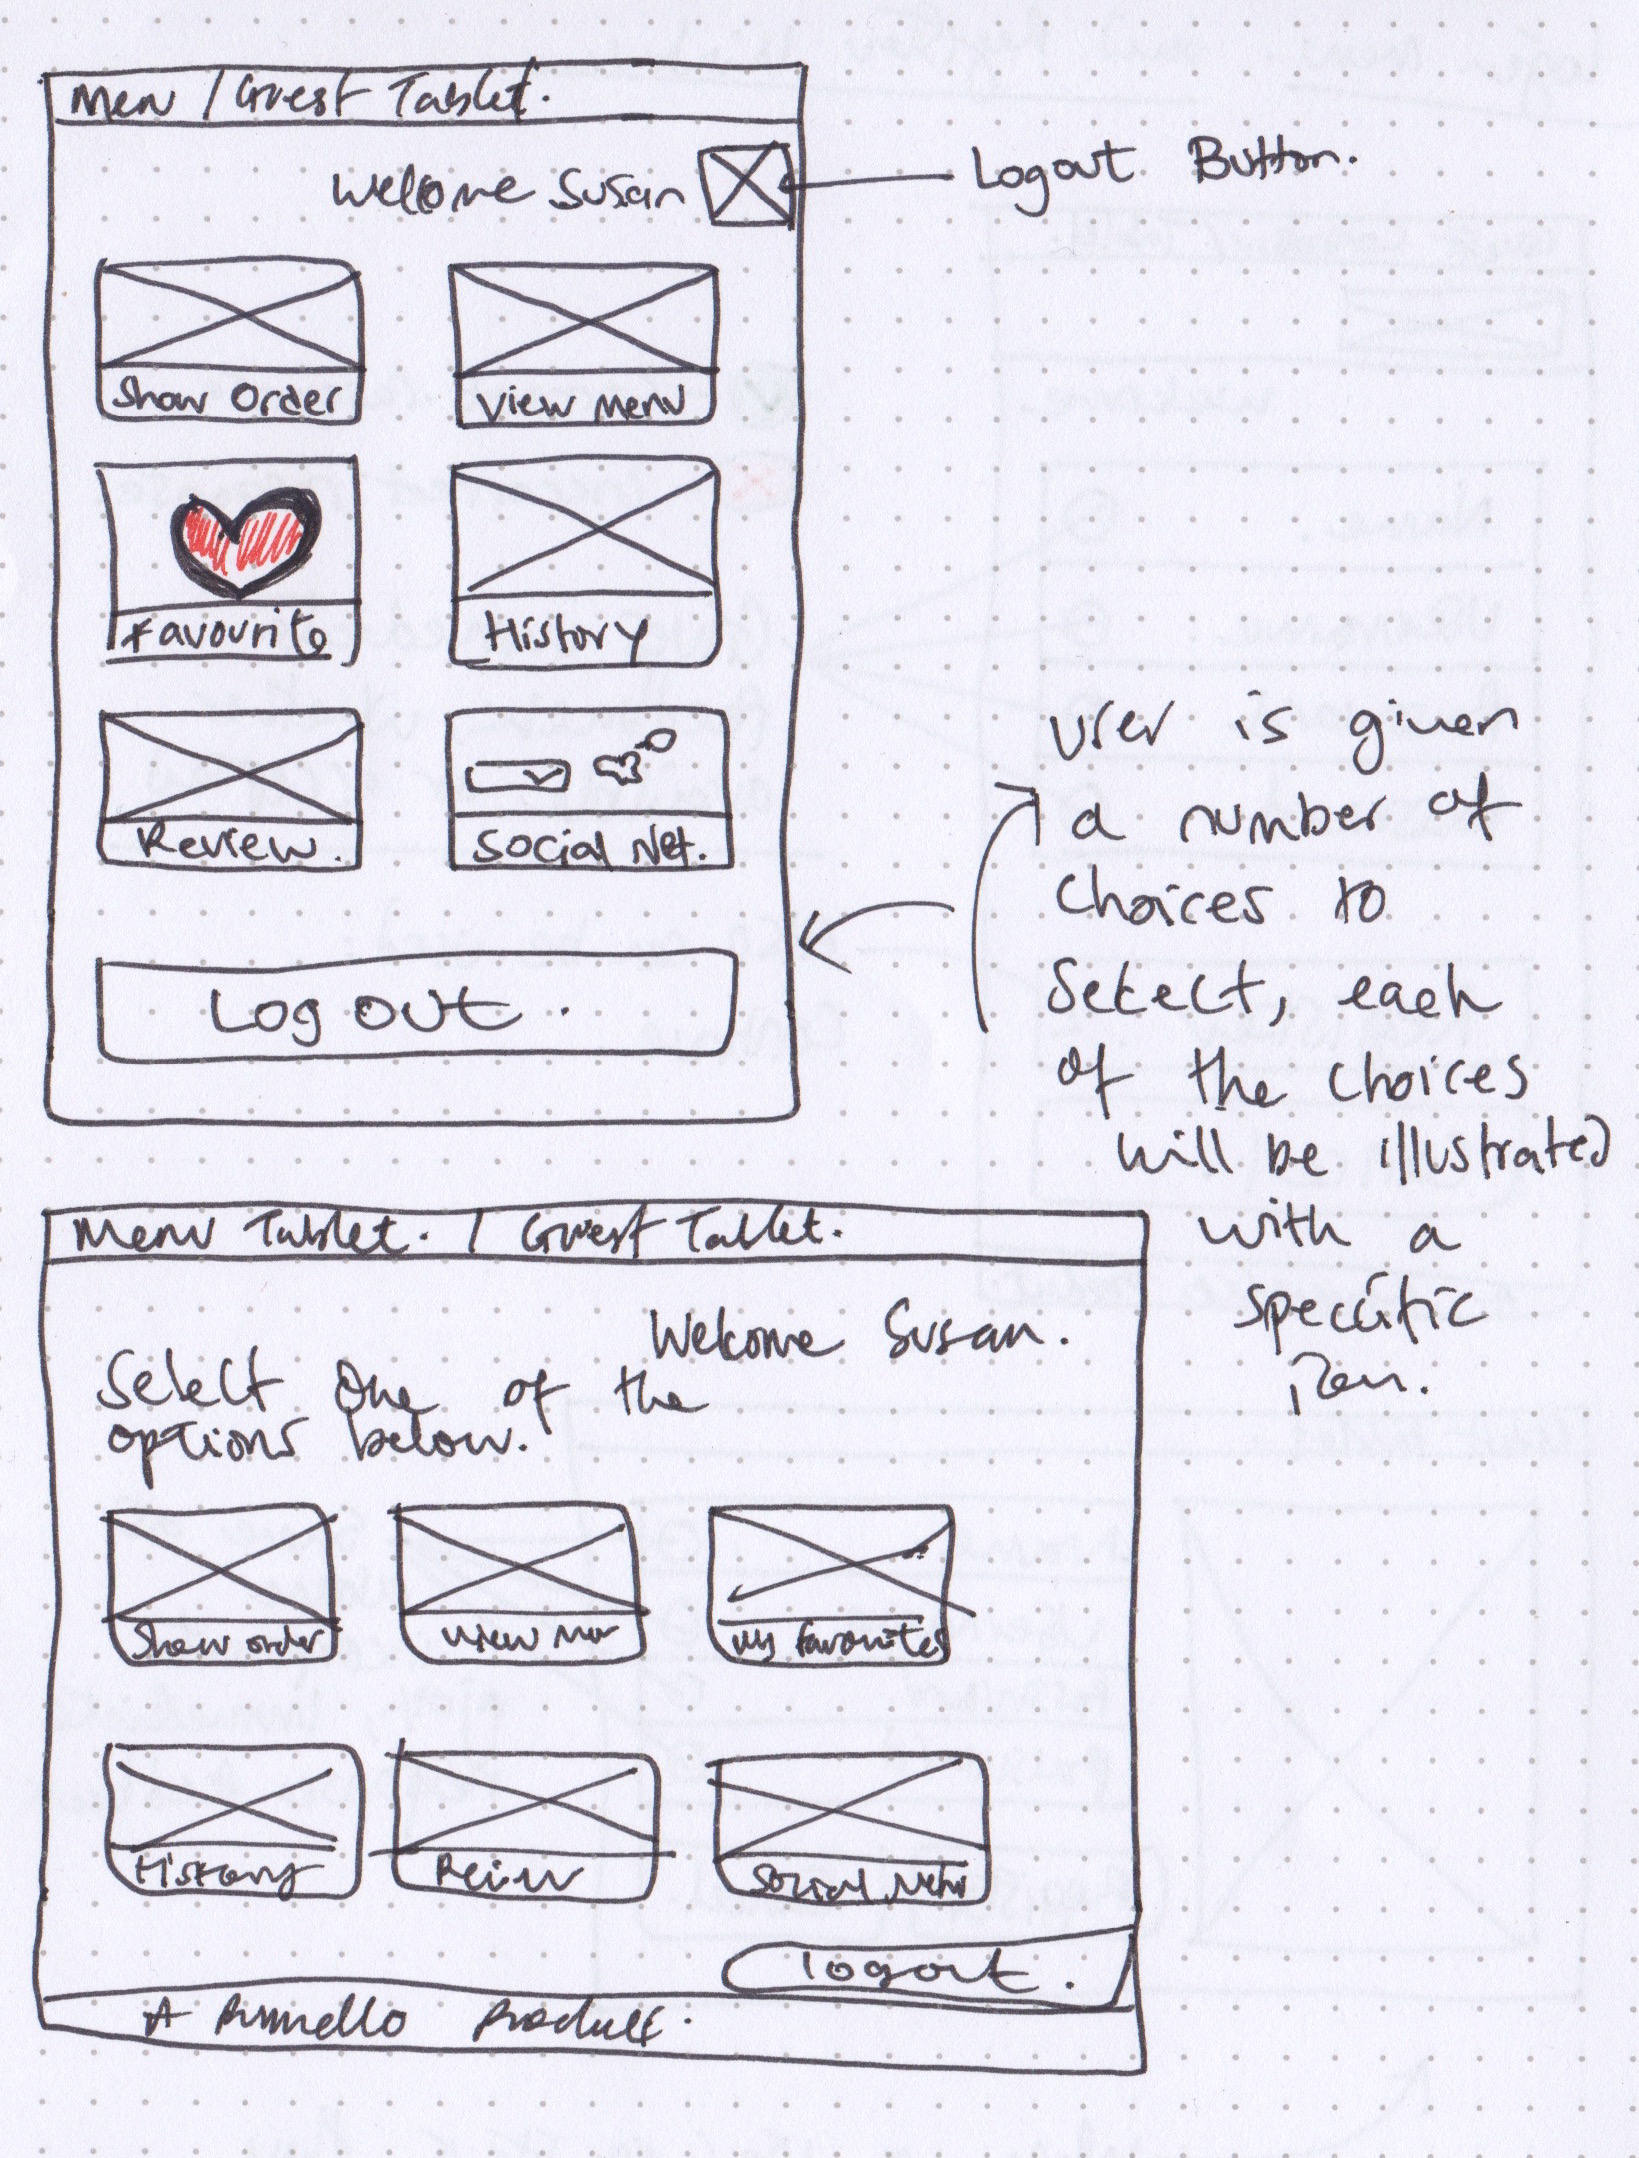 Menu / Guest Tablet.
Welcome Susan
Logout Button.
Show Order
View Menu
Favourite
History
Review.
Social Net.
Log out.
User is given
a number of
choices to
Select, each
of the choices
will be illustrated
with a
specific
Menu Tablet. / Guest Tablet.
Welcome Susan.
Select One of the
options below.
Show order
View
My favorites
History
Review
Social
logout.
A Product.